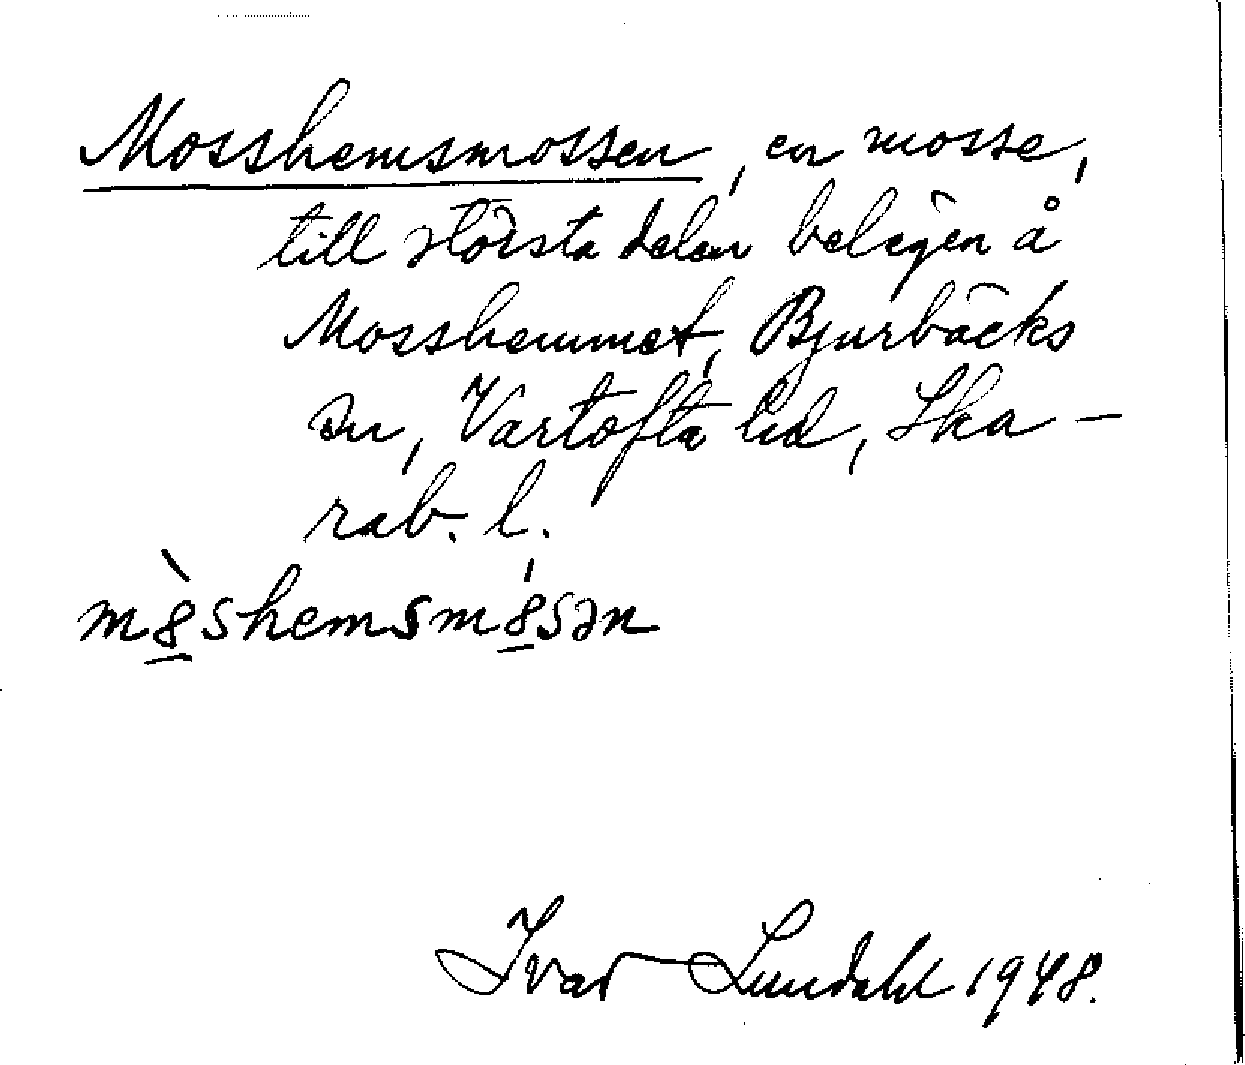 Mosshemsmossen, en mosse,
till största delen belägen å
Mosshemmet, Bjurbäcks
sn, Vartofta hd, Ska-
rab. l.
m8̲̀shemsm8̲́sən
Ivar Lundahl 1948.